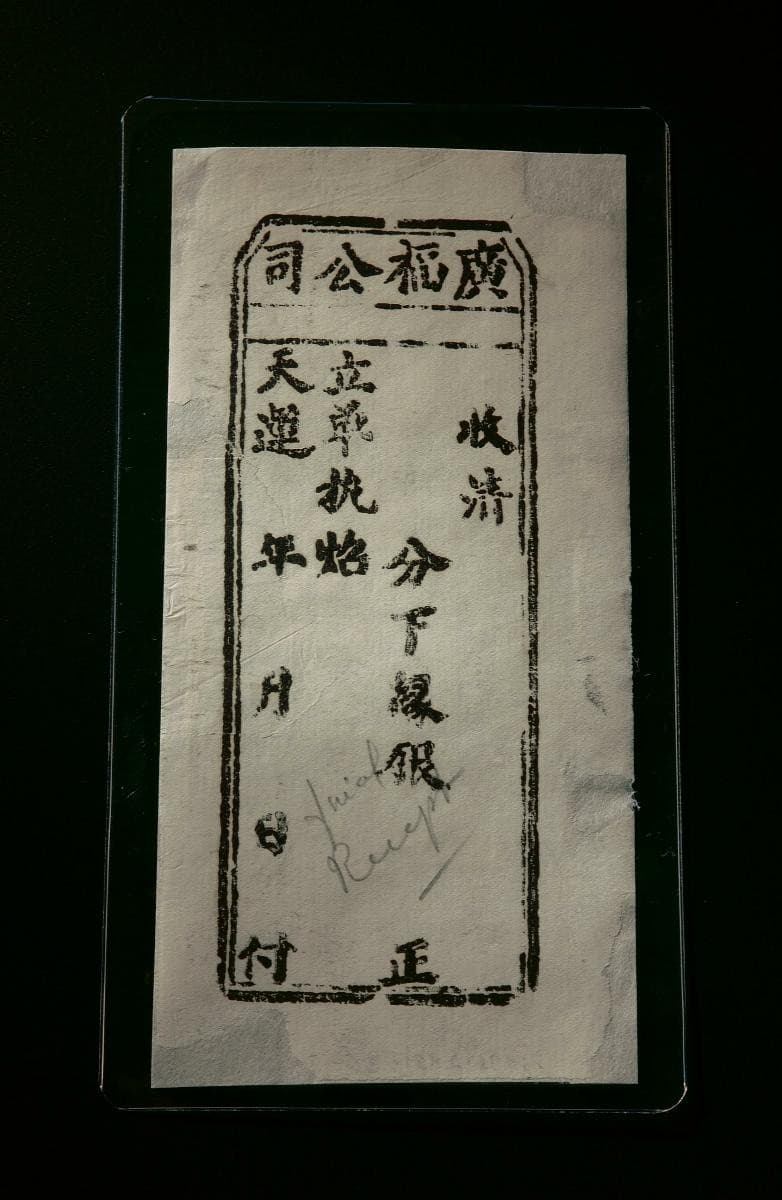 廣福公司
收清
分下緣銀 正
立单执炤
天運 年 月 日 付
Receipt